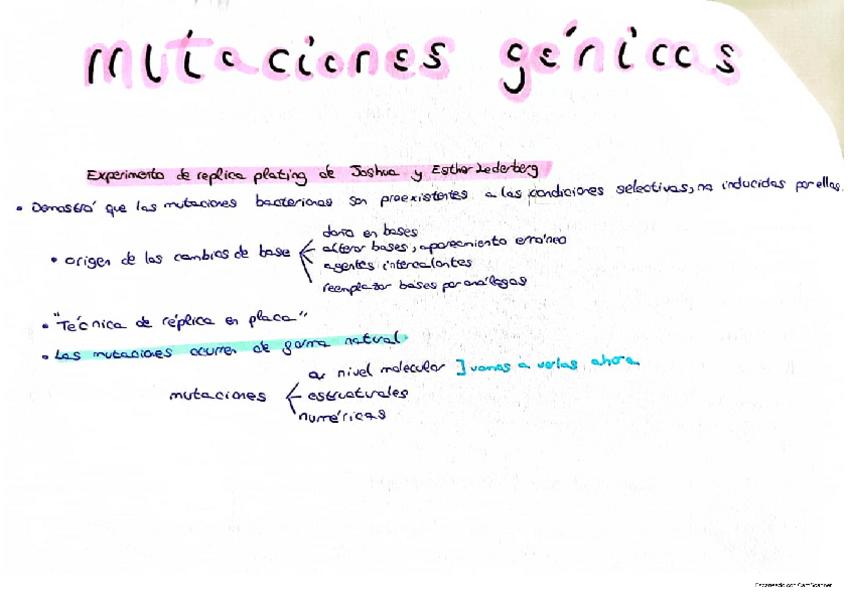 mutaciones génicas
Experimento de replica plating de Joshua y Esther Lederberg
• Demostró que las mutaciones bacterianas son preexistentes a las condiciones selectivas, no inducidas por ellas.
• origen de los cambios de base
daño en bases
alterar bases, apareamiento erróneo
agentes intercalantes
reemplazar bases por análogos
• "Técnica de réplica en placa"
• Las mutaciones ocurren de forma natural
mutaciones
a nivel molecular ] vamos a verlas ahora
estructurales
numéricas
Escaneado con CamScanner